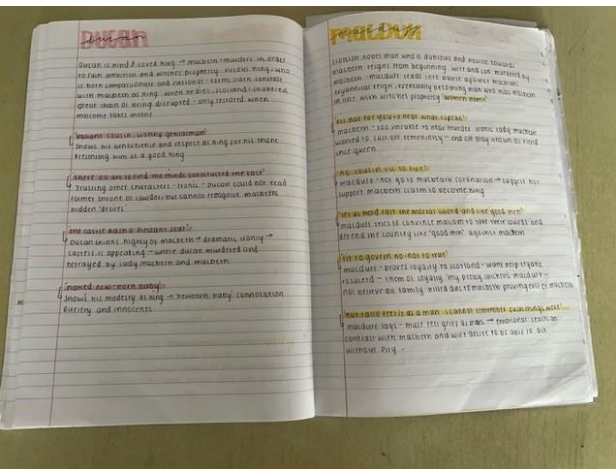 DUCAN
Ducan is kind & loved king → macbeth murders in order
to fulfil ambition and witches prophecy. Virtuous king, who
is both compassionate and rational - forms clean contrast
with macbeth as king. When he dies, scotland is shattered
great chain of being disrupted - only restored when
malcome takes throne
'valiant cousin, worthy gentleman'
Shows his benevolence and respect as king for his thane
Presenting him as a good king
'there's no art to find the minds construction the face'
Trusting other characters - ironic - Ducan could not read
former throne of cawdor but cannot recognise macbeths
hidden desires
'the castle hath a pleasant seat'
Ducan thinks highly of macbeth → dramatic irony →
castle is appealing - where ducan murdered and
betrayed by lady macbeth and macbeth
'naked new-born baby'
Shows his modesty as king → 'newborn baby' connotation
and innocence
MACDUFF
Scottish nobel man who is dubious and hostile towards
macbeth reigns from beginning. Wife and son murdered by
macbeth - macduff leads into battle against macbeths
tyrannical reign, eventually becoming man who kills macbeth
in line with witches prophecy 'women born'
'tis not for you to hear what I speak'
macbeth - too vunrable to hear murder. Ironic lady macbeth
wanted to call off femininity - end off play known as fiend
like queen
'no cousin, i'll to fife'
macduff - not go to macbeth coronation → suggest not
support macbeth claim to becoming king
hold fast the mortal sword and like good men'
macduff tries to convince malcom to take their swords and
defend the country like "good men" against macbeth
'fit to govern no not to live'
macduff - proves loyalty to scotland -
'my
not believe family killed due to macbeth proving evil of macbeth
'but i also feel it as a man i cannot remember such things were'
macduff says - must feel grief as man → emotional
contrast with macbeth and wife desire to be able to act
without pity -